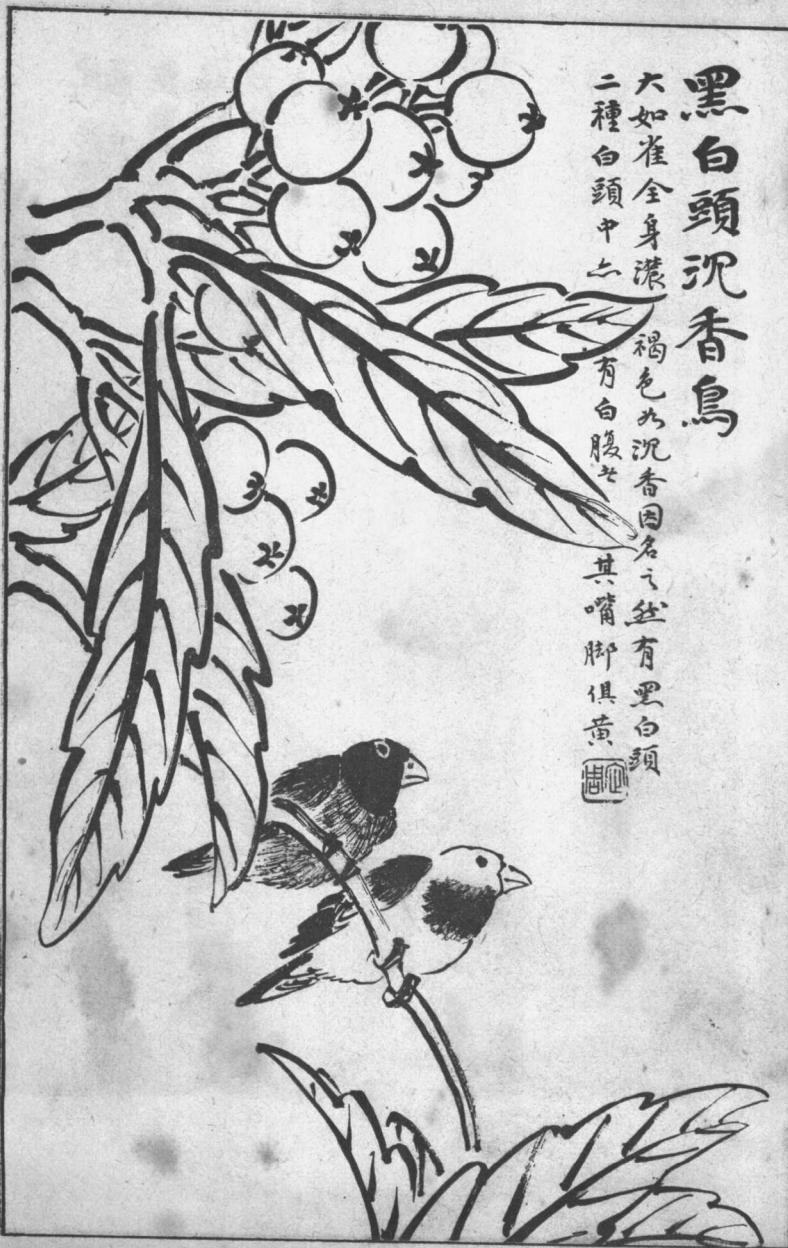 黑白頭沉香鳥
大如雀全身濃褐色如沉香因名之然有黑白頭
二種白頭中亦有白腹者其嘴脚俱黄